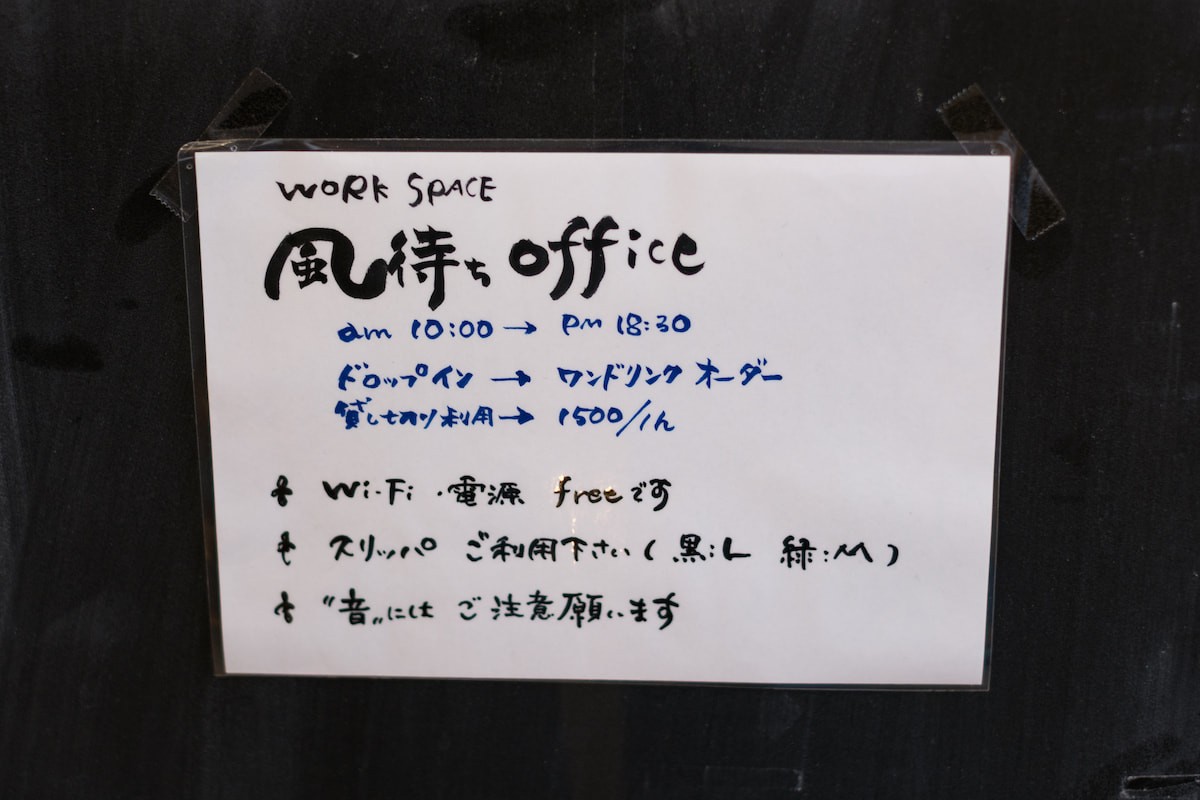 WORK SPACE
風待ち office
am 10:00 → PM 18:30
ドロップイン → ワンドリンク オーダー
貸し切り利用 → 1500/1h
Wi-Fi・電源 freeです
スリッパ ご利用下さい(黒:L 緑:M)
"音"には ご注意願います